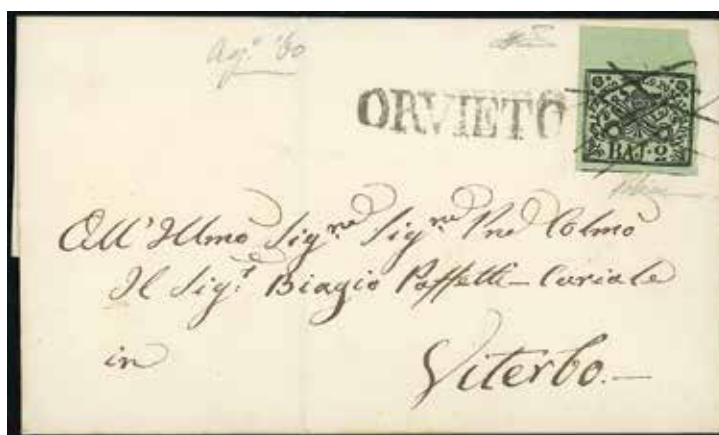 Agº '60
ORVIETO
BAJ·2
All'Illmo Sigʳᵉ Sigʳᵉ Pne Colmo
Il Sigʳ Biagio Poffetti - Curiale
in
Viterbo.—